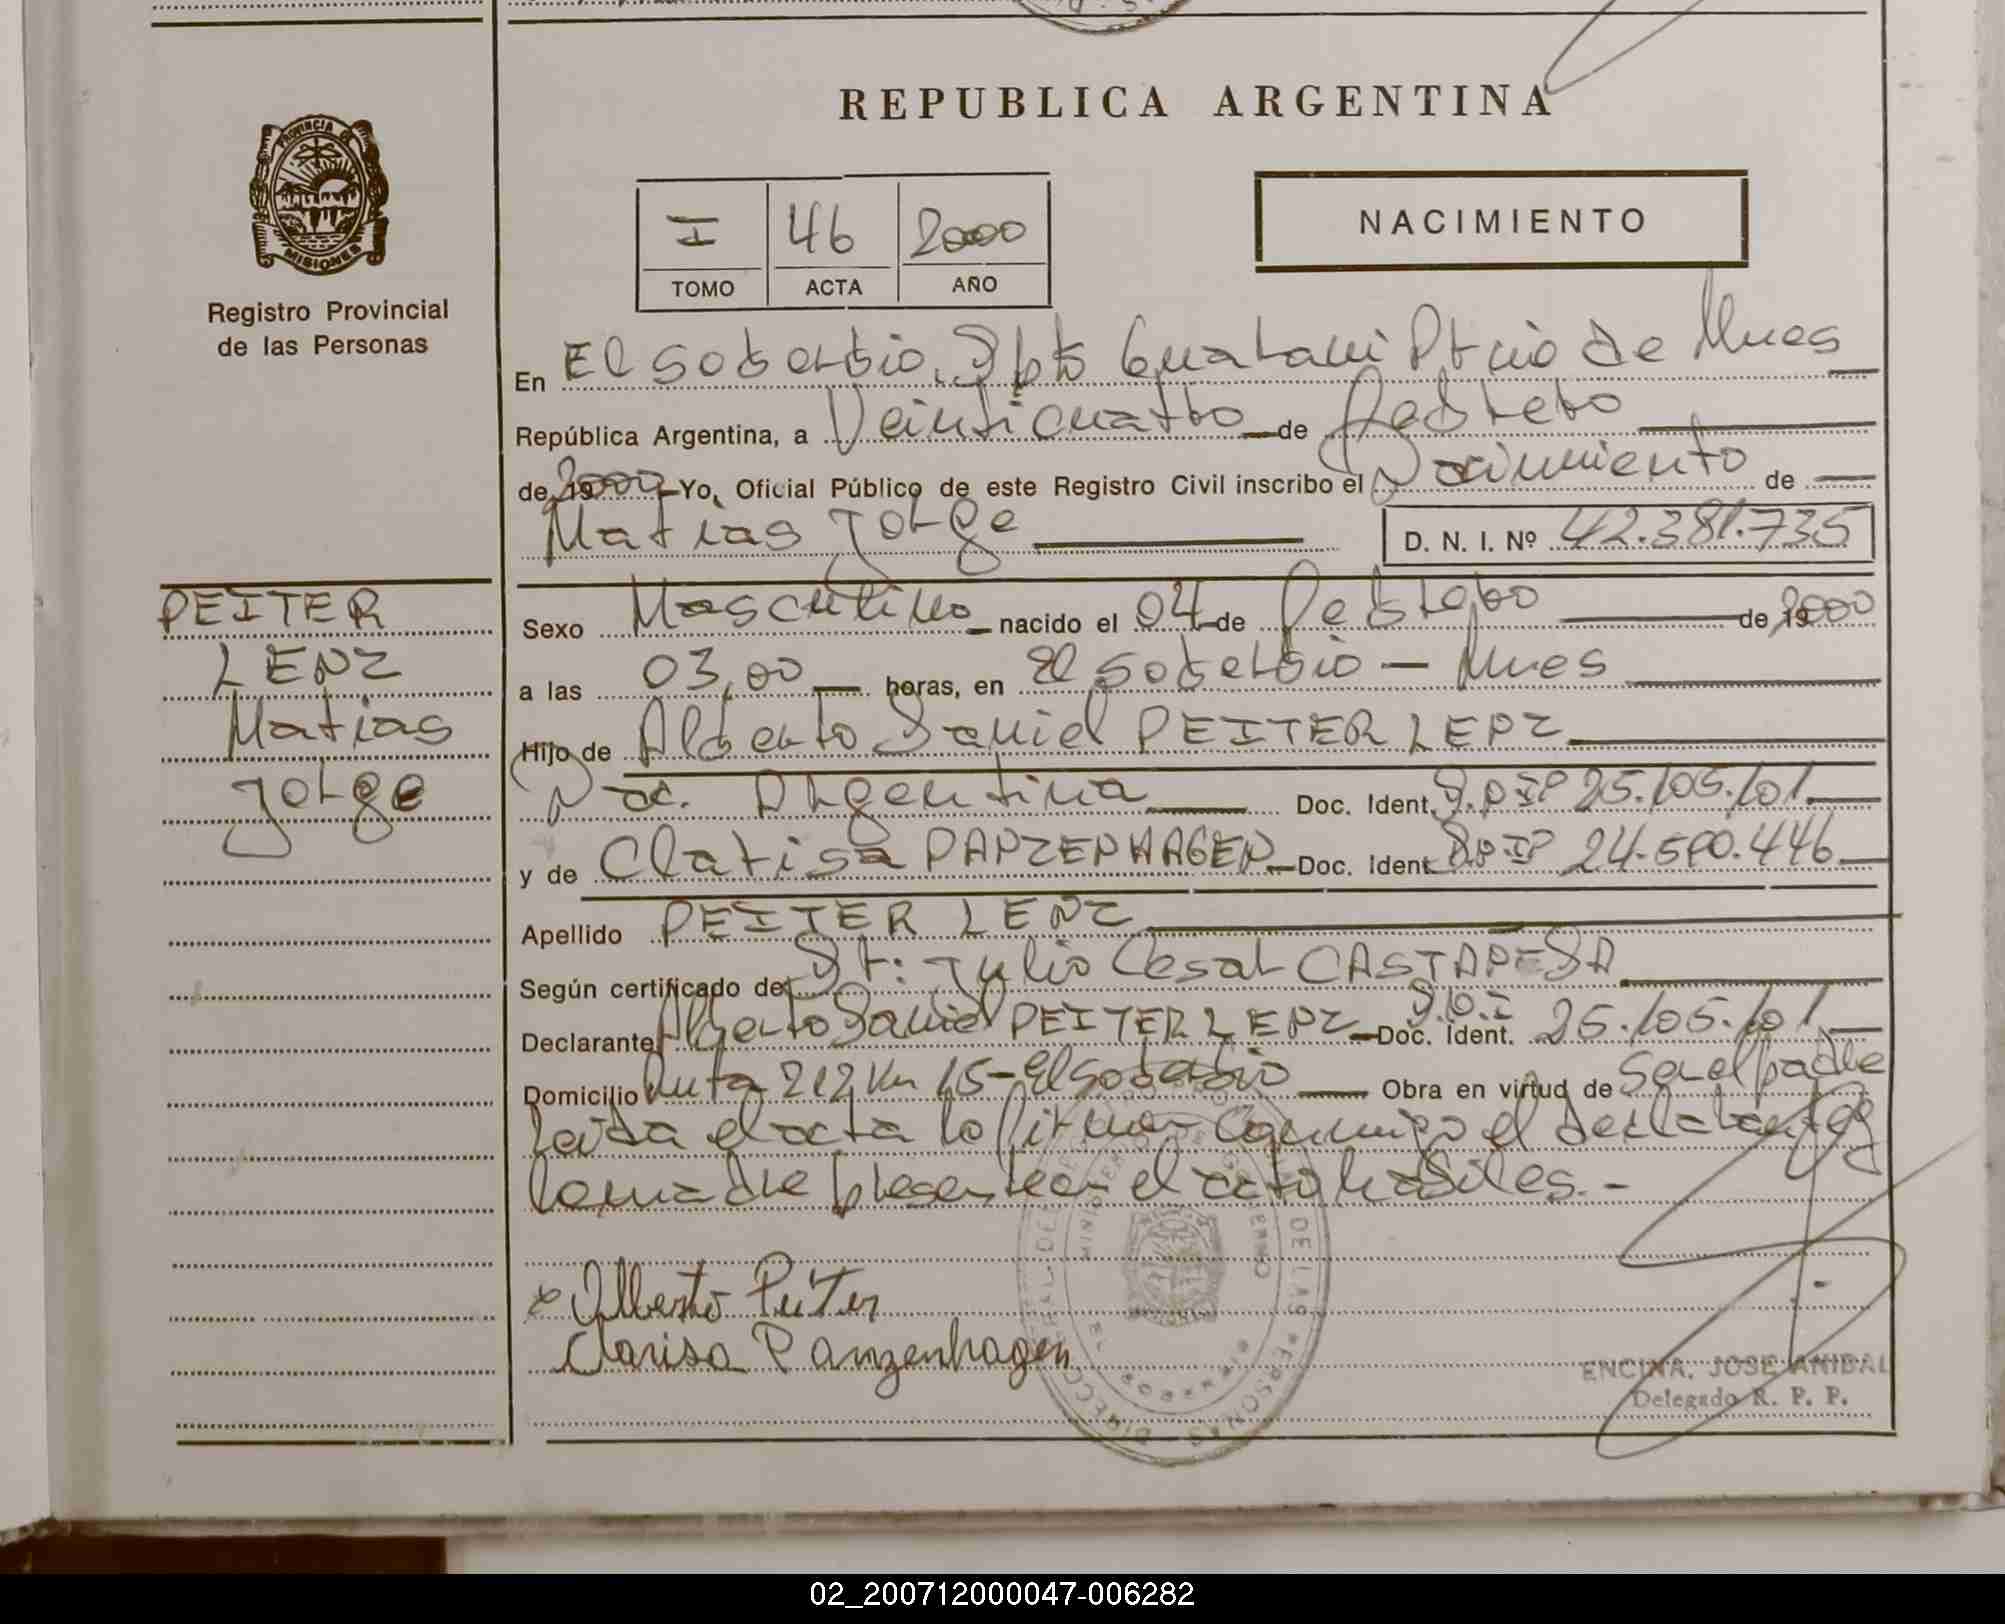 REPUBLICA ARGENTINA
PROVINCIA DE
MISIONES
Registro Provincial
de las Personas
I 46 2000
TOMO ACTA AÑO
NACIMIENTO
En El Soberbio, Dpto Guarani Pcia de Mnes
República Argentina, a Veinticuatro de Febrero
de 19 2000 Yo, Oficial Público de este Registro Civil inscribo el Nacimiento de
Matias Jorge D. N. I. Nº 42.381.735
PEITER
LENZ
Matias
Jorge
Sexo Masculino nacido el 04 de Febrero de 19 2000
a las 03,00 horas, en El Soberbio - Mnes
Hijo de Alberto Daniel PEITER LENZ
Nac. Argentina Doc. Ident. D.N.I Nº 25.105.101
y de Clarisa PANZENHAGEN Doc. Ident. D.N.I Nº 24.590.446
Apellido PEITER LENZ
Según certificado de Dr: Julio Cesar CASTAÑEDA
Declarante Alberto Daniel PEITER LENZ Doc. Ident. D.N.I 25.105.101
Domicilio Ruta 212 Km 15 - El Soberbio Obra en virtud de Ser el padre
Leida el acta lo firman conmigo el declarante y
la madre presente en el acto
Alberto Peiter
Clarisa Panzenhagen
ENCINA, JOSE ANIBAL
Delegado R. P. P.
02_200712000047-006282